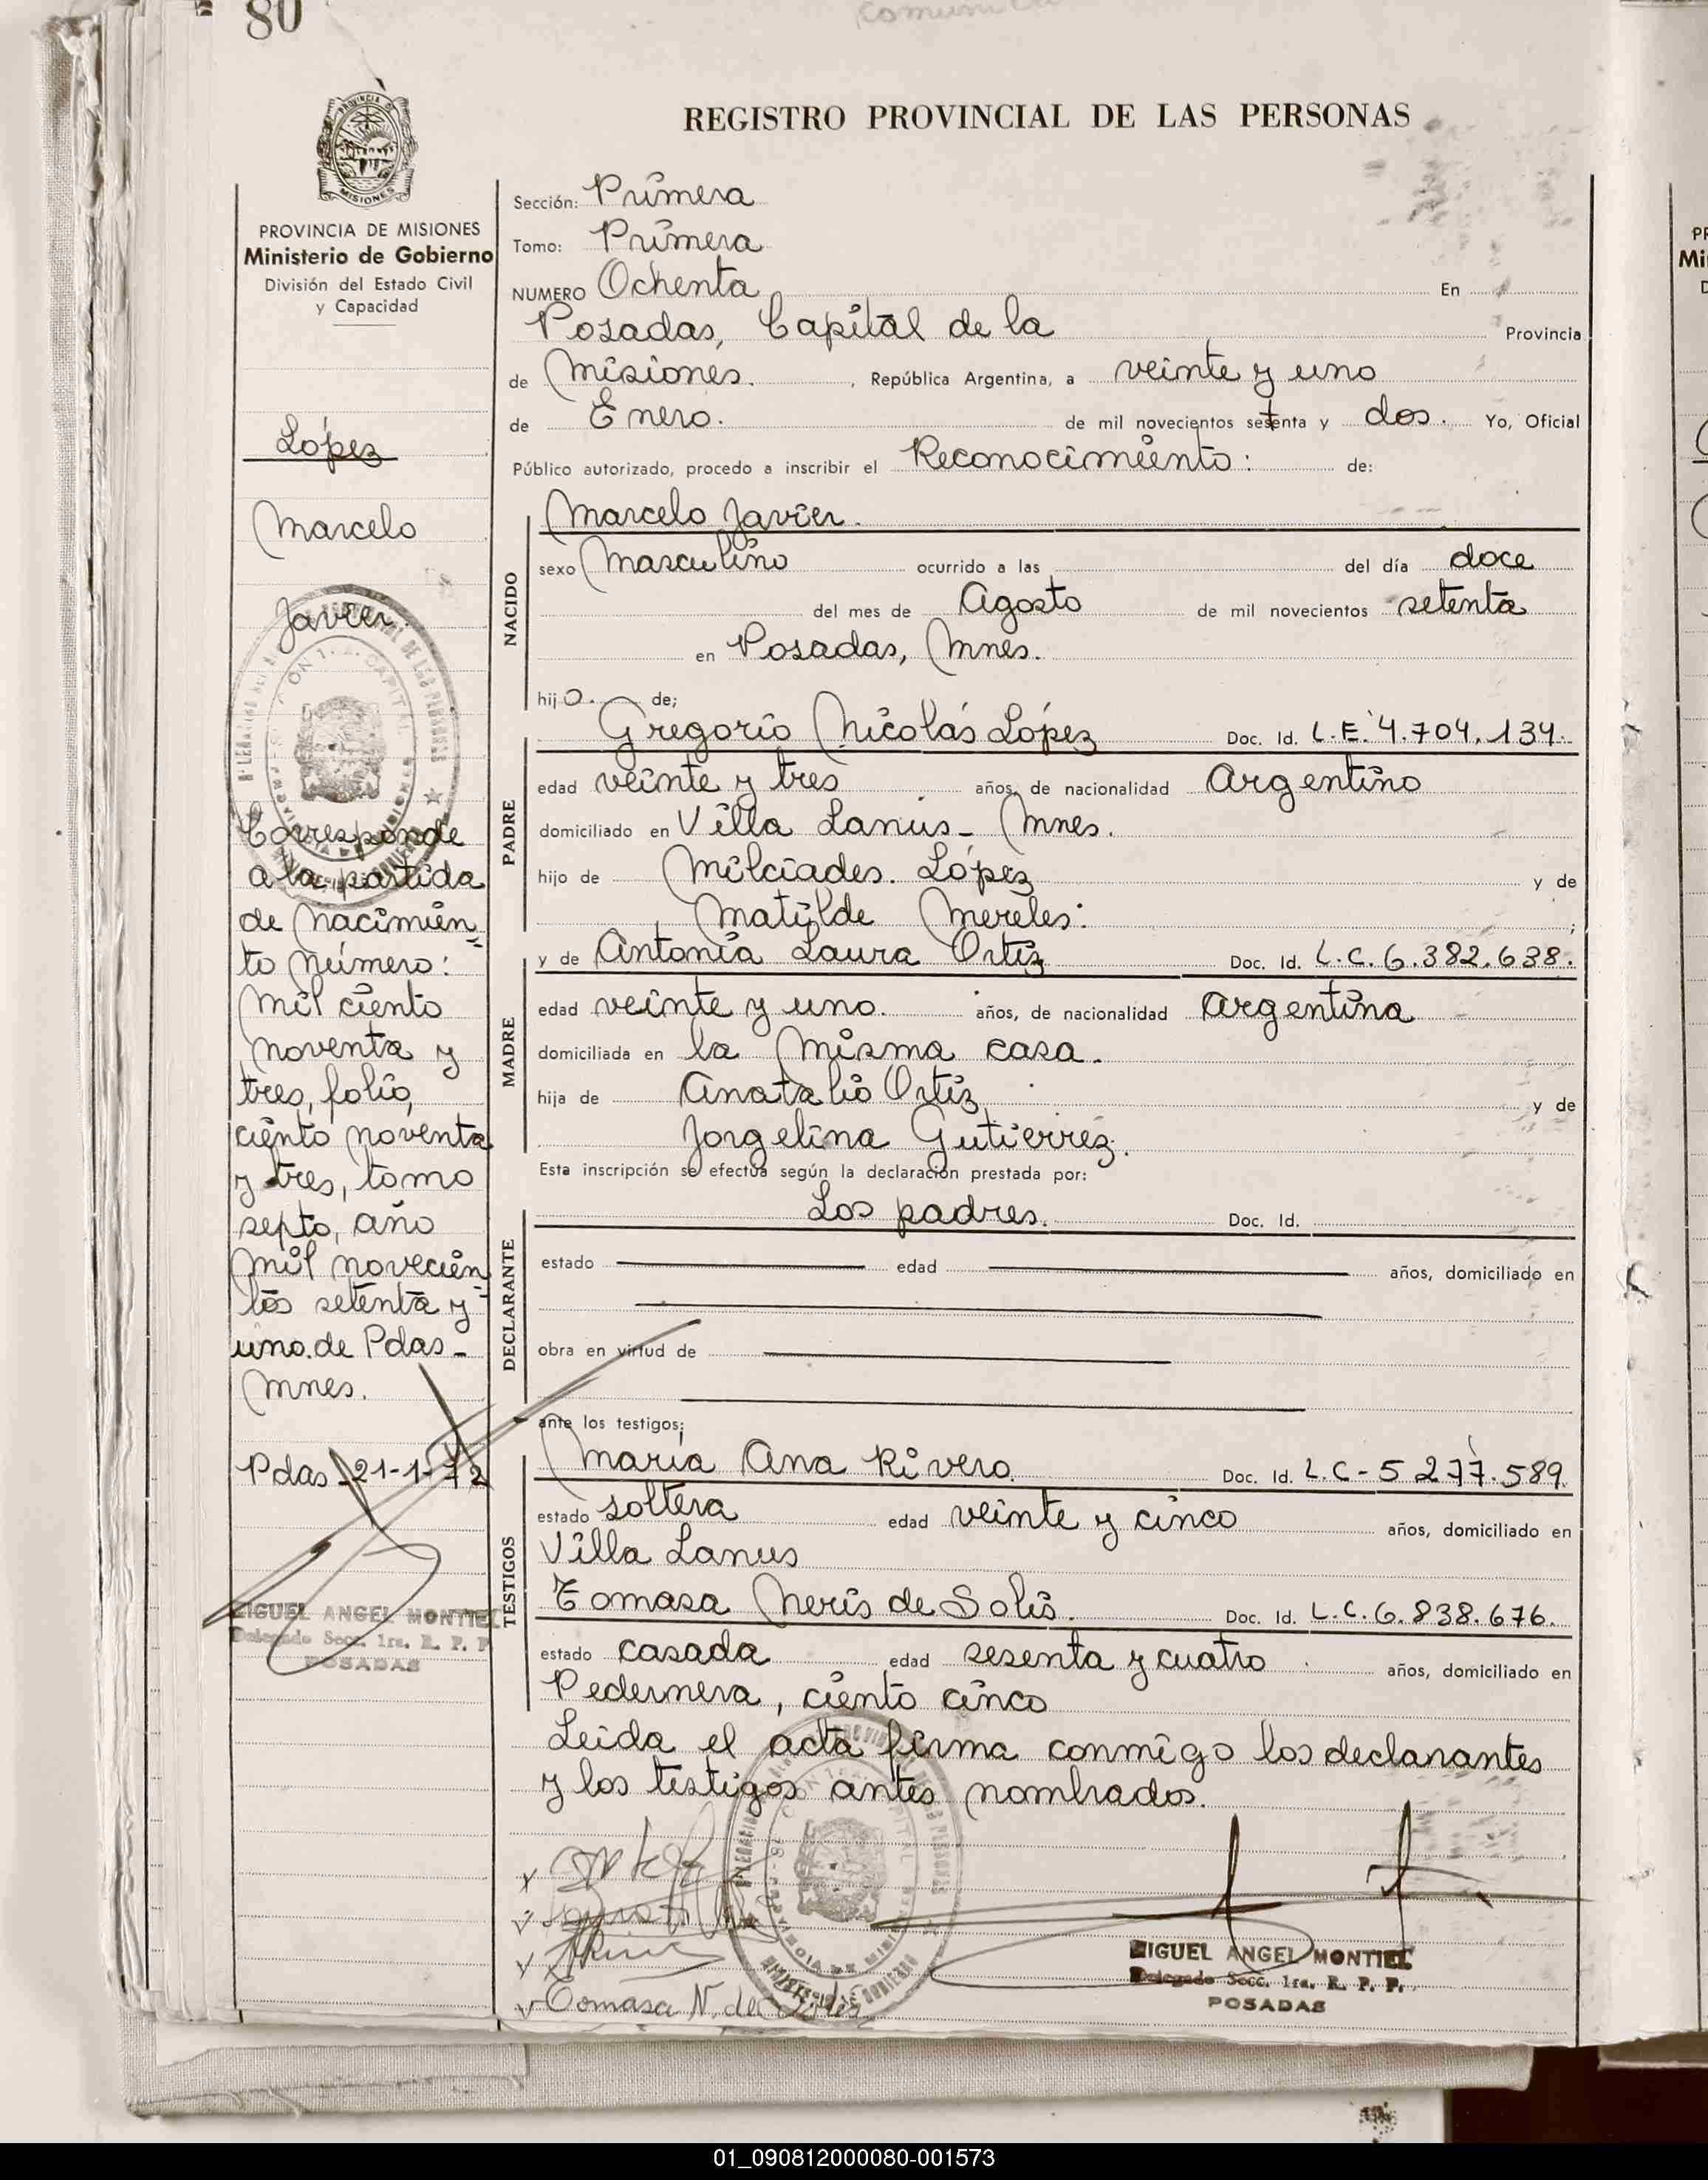 80
PROVINCIA DE MISIONES
Ministerio de Gobierno
División del Estado Civil
y Capacidad
López
Marcelo
Javier.
Corresponde
a la partida
de nacimien=
to número:
mil ciento
noventa y
tres, folio,
ciento noventa
y tres, tomo
septo, año
mil novecien=
tos setenta y
uno. de Pdas-
Mnes.
Pdas-21-1-72
MIGUEL ANGEL MONTIEL
Delegado Secc. 1ra. R. P. P.
POSADAS
REGISTRO PROVINCIAL DE LAS PERSONAS
Sección: Primera
Tomo: Primera
NUMERO Ochenta En
Posadas, Capital de la Provincia
de Misiones. , República Argentina, a veinte y uno
de Enero. de mil novecientos setenta y dos. Yo, Oficial
Público autorizado, procedo a inscribir el Reconocimiento: de:
NACIDO
Marcelo Javier.
sexo Masculino ocurrido a las del día doce
del mes de Agosto de mil novecientos setenta
en Posadas, Mnes.
hijo. de;
PADRE
Gregorio Nicolás López Doc. Id. L.E. 4.704.134.
edad veinte y tres años, de nacionalidad Argentino
domiciliado en Villa Lanus- Mnes.
hijo de Milciades. López y de
Matilde Mereles: ;
MADRE
y de Antonia Laura Ortiz Doc. Id. L.C. 6.382.638.
edad veinte y uno. años, de nacionalidad Argentina
domiciliada en la misma casa.
hija de Anatalio Ortiz y de
Jorgelina Gutierrez.
Esta inscripción se efectúa según la declaración prestada por:
DECLARANTE
Los padres. Doc. Id.
estado edad años, domiciliado en
obra en virtud de
ante los testigos;
TESTIGOS
María Ana Rivero. Doc. Id. L.C-5 277.589.
estado soltera edad veinte y cinco años, domiciliado en
Villa Lanus
Tomasa Neris de Solis. Doc. Id. L.C. 6.838.676.
estado casada edad sesenta y cuatro años, domiciliado en
Pedernera, ciento cinco
Leida el acta firma conmigo los declarantes
y los testigos antes nombrados.
Tomasa N. de
MIGUEL ANGEL MONTIEL
Delegado Secc. 1ra. R. P. P.
POSADAS
01_090812000080-001573